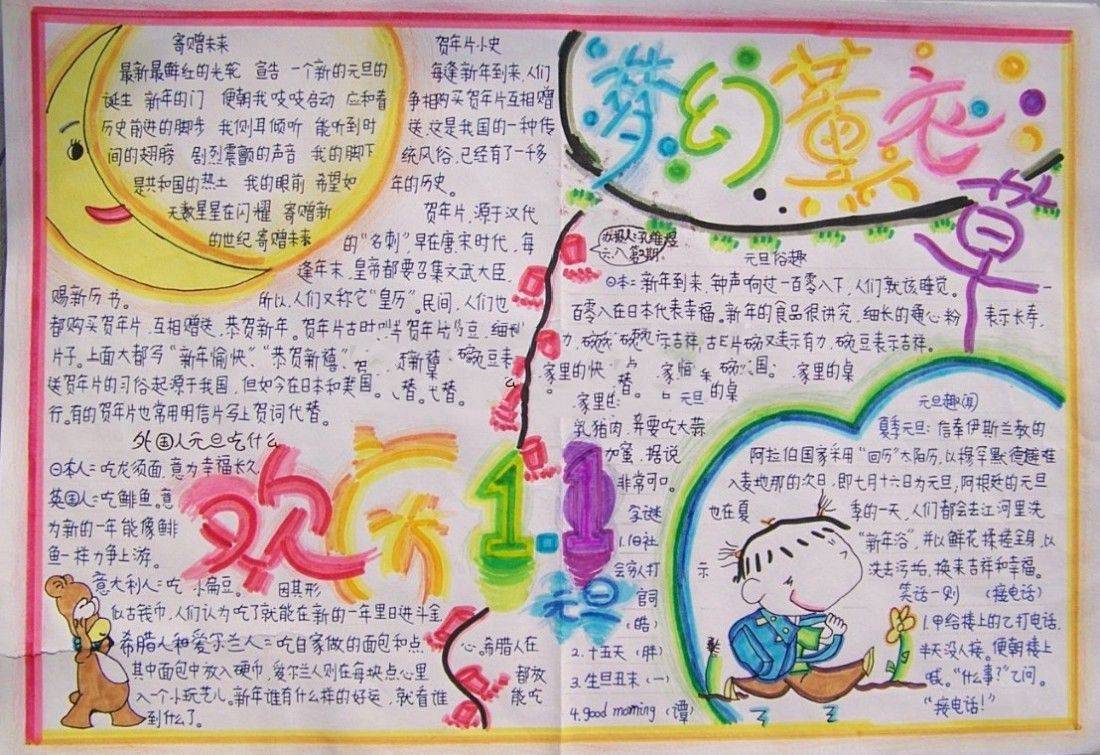 寄赠未来
最新最鲜红的光轮 宣告 一个新的元旦的
诞生 新年的门 便朝我吱吱启动 应和着
历史前进的脚步 我侧耳倾听 能听到时
间的翅膀 剧烈震颤的声音 我的脚下
是共和国的热土 我的眼前 希望如
无数星星在闪耀 寄赠新
的世纪寄赠未来
贺年片小史
每逢新年到来,人们
争相购买贺年片互相赠
送,这是我国的一种传
统风俗,已经有了一千多
年的历史。
贺年片,源于汉代
的“名刺”早在唐宋时代,每
逢年末,皇帝都要召集文武大臣
赐新历书。 所以,人们又称它“皇历”。民间,人们也
都购买贺年片,互相赠送,恭贺新年。贺年片古时叫
片子。上面大都写“新年愉快”、“恭贺新禧”、
送贺年片的习俗起源于我国,但如今在日和美国、
行。有的贺年片也常用明信片写上贺词代替。
外国人元旦吃什么
日本人:吃龙须面,意为幸福长久
英国人:吃鲱鱼。意
为新的一年能像鲱
鱼一样力争上游。
意大利人:吃小扁豆。 因其形
似古钱币,人们认为吃了就能在新的一年里日进斗金
希腊人和爱尔兰人:吃自家做的面包和点
心。希腊人在
其中面包中放入硬币,爱尔兰人则在每块点心里
都放
入一个小玩艺儿。新年谁有什么样的好运,就看谁
能吃
到什么了。
欢庆1.1
元旦
梦幻薰衣草
六.八 第2期。
元旦俗趣
日本:新年到来,钟声响过一百零八下,人们就该睡觉。
百零八在日本代表幸福。新年的食品很讲究,细长的通心粉 表示长寿,
示吉祥, 表示有力, 豌豆表示吉祥。
家里的快
家里的桌
元旦的桌
乳猪肉,并要吃大蒜
加蜜,据说
非常可口。
字谜
1.旧社
会穷人打
官
(皓)
2.十五天 (胖)
3.生旦丑末 (一)
4.good morning (谭)
元旦趣闻
夏季元旦:信奉伊斯兰教的
阿拉伯国家采用“回历”太阳历,以穆罕默德避难
入麦地那的次日,即七月十六日为元旦,阿根廷的元旦
也在夏 季的一天,人们都会去江河里洗
“新年浴”,并以鲜花揉搓全身,以
示 洗去污垢,换来吉祥和幸福。
笑话一则 (接电话)
1.甲给楼上的乙打电话,
半天没人接。便朝楼上
喊。“什么事?”乙问。
“接电话!”